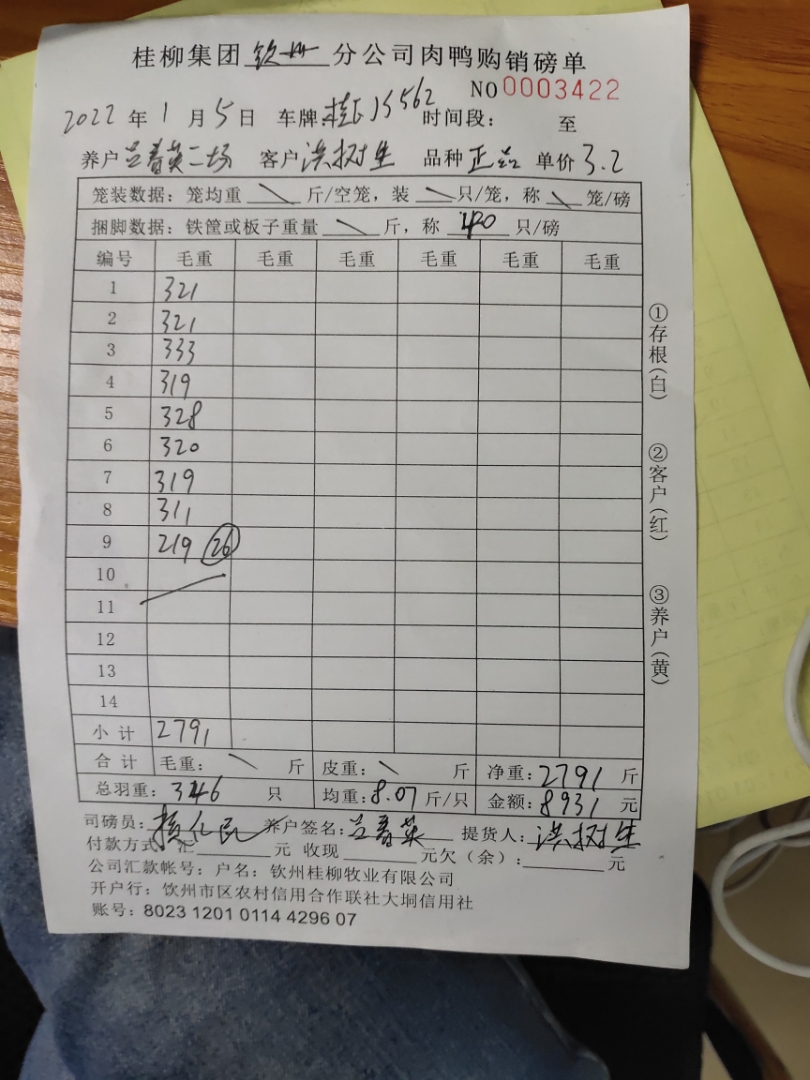 桂柳集团 钦州 分公司肉鸭购销磅单
NO 0003422
2022 年 1 月 5 日 车牌 桂 15562 时间段： 至
养户 兰春英二场 客户 洪树生 品种 正品 单价 3.2
笼装数据：笼均重 \ 斤/空笼，装 \ 只/笼，称 \ 笼/磅
捆脚数据：铁筐或板子重量 \ 斤，称 40 只/磅
编号 毛重 毛重 毛重 毛重 毛重 毛重
1 321
2 321
3 333
4 319
5 328
6 320
7 319
8 311
9 219 26
10
11
12
13
14
小计 2791
合计 毛重： \ 斤 皮重： \ 斤 净重：2791 斤
总羽重：346 只 均重：8.07 斤/只 金额：8931 元
司磅员： 养户签名：兰春英 提货人：洪树生
付款方式：汇 元 收现 元欠（余）： 元
公司汇款帐号：户名：钦州桂柳牧业有限公司
开户行：钦州市区农村信用合作联社大垌信用社
账号：8023 1201 0114 4296 07
①存根(白)
②客户(红)
③养户(黄)